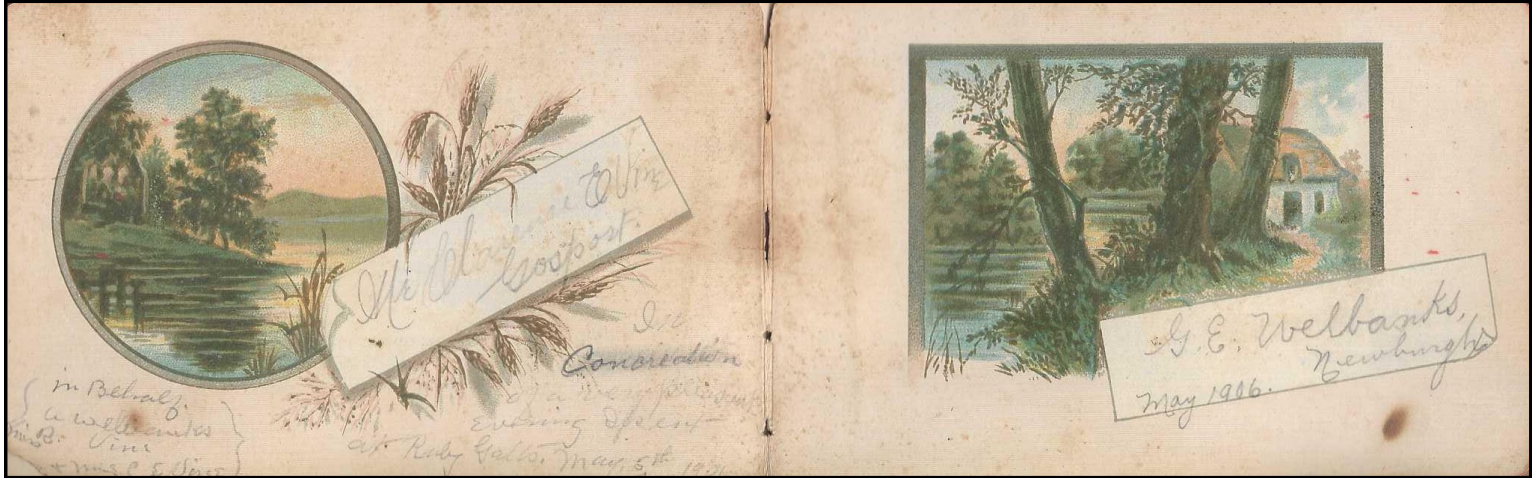 Mr Clarence E Vine
Gosport.
In
Concredation
of a very pleasant
evening spent
at Ruby Galts. May, 5th
in Behalf
a welbanks
Miss B. Vine
+ Miss C E Vine
G. E. Welbanks,
Newburgh
May 1906.